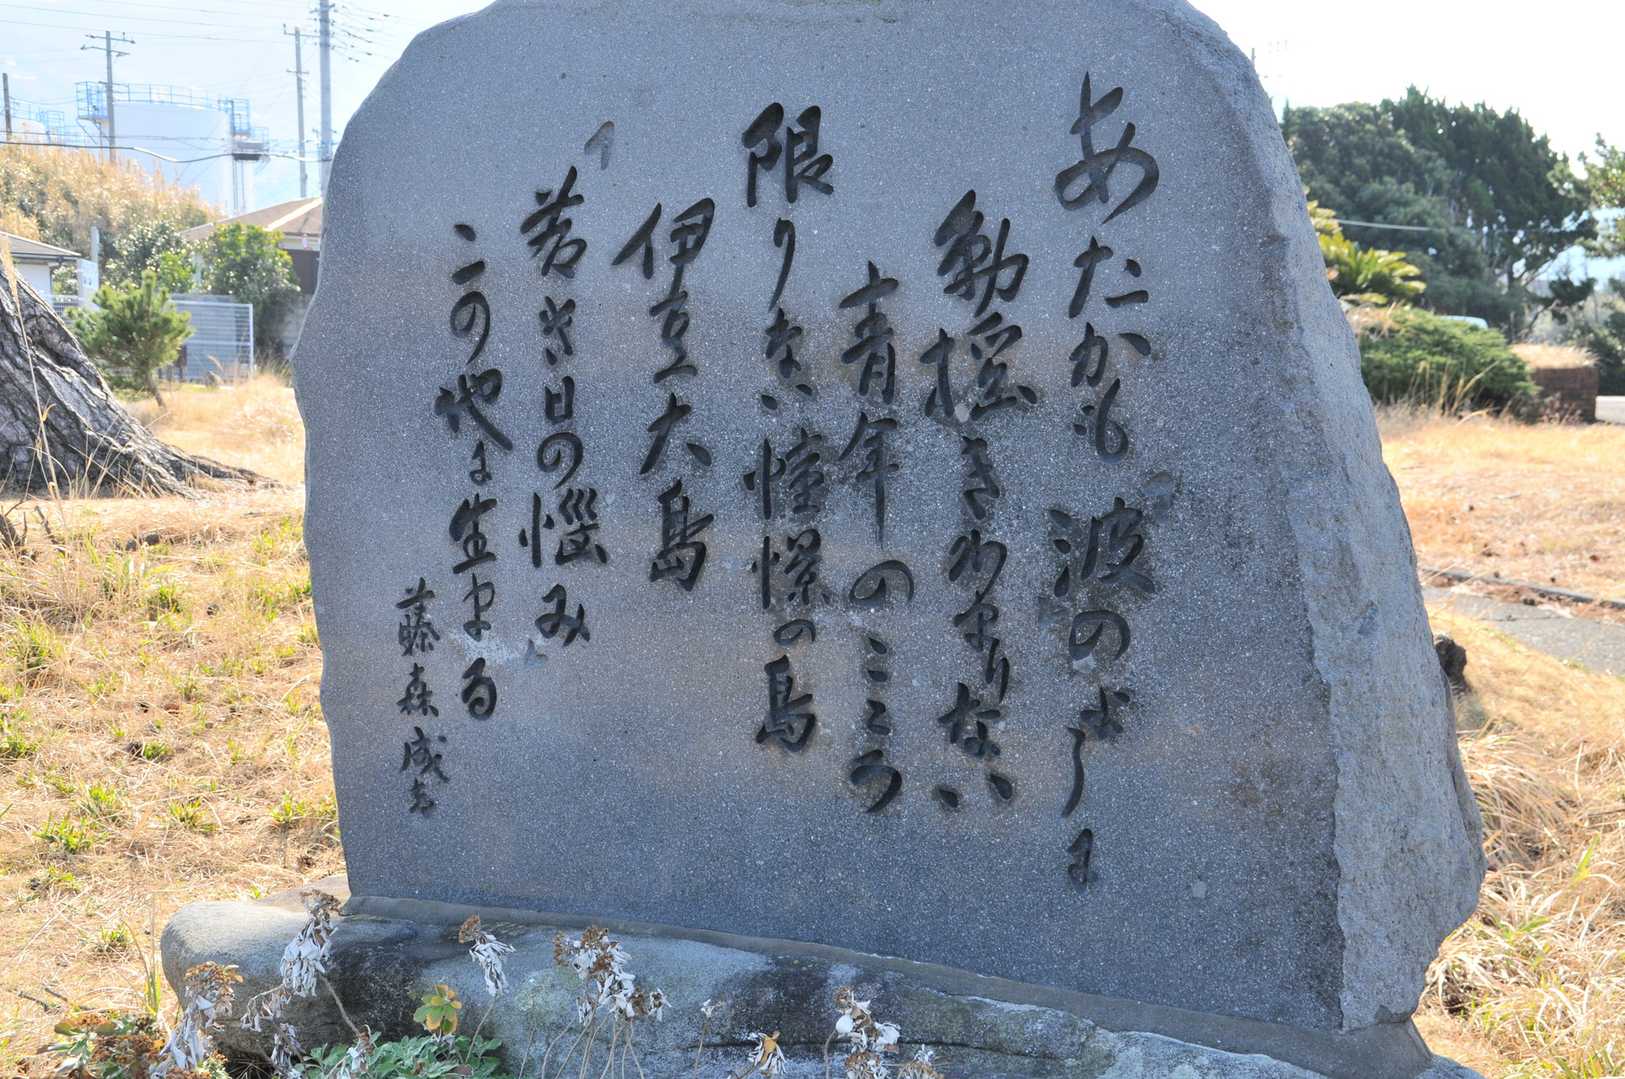 あたかも波のように
動揺きわまりない
青年のこころ
限りない憧憬の島
伊豆大島
「若き日の悩み」
この地に生まる
藤森成吉